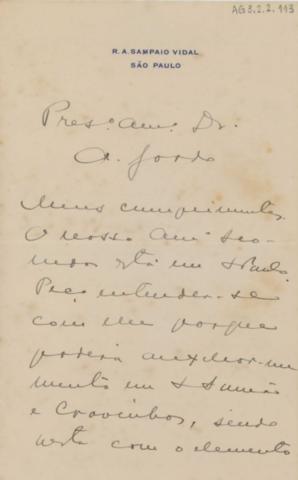 AG3.2.2.113
R. A. SAMPAIO VIDAL
SÃO PAULO
Presº. amº. Dr.
A. Gordo
Meus cumprimentos.
O nosso amº
está em S Paulo.
Peço entender-se
com elle porque
poderá auxiliar-me
em S Simão
e Cravinhos, sendo
com o elemento